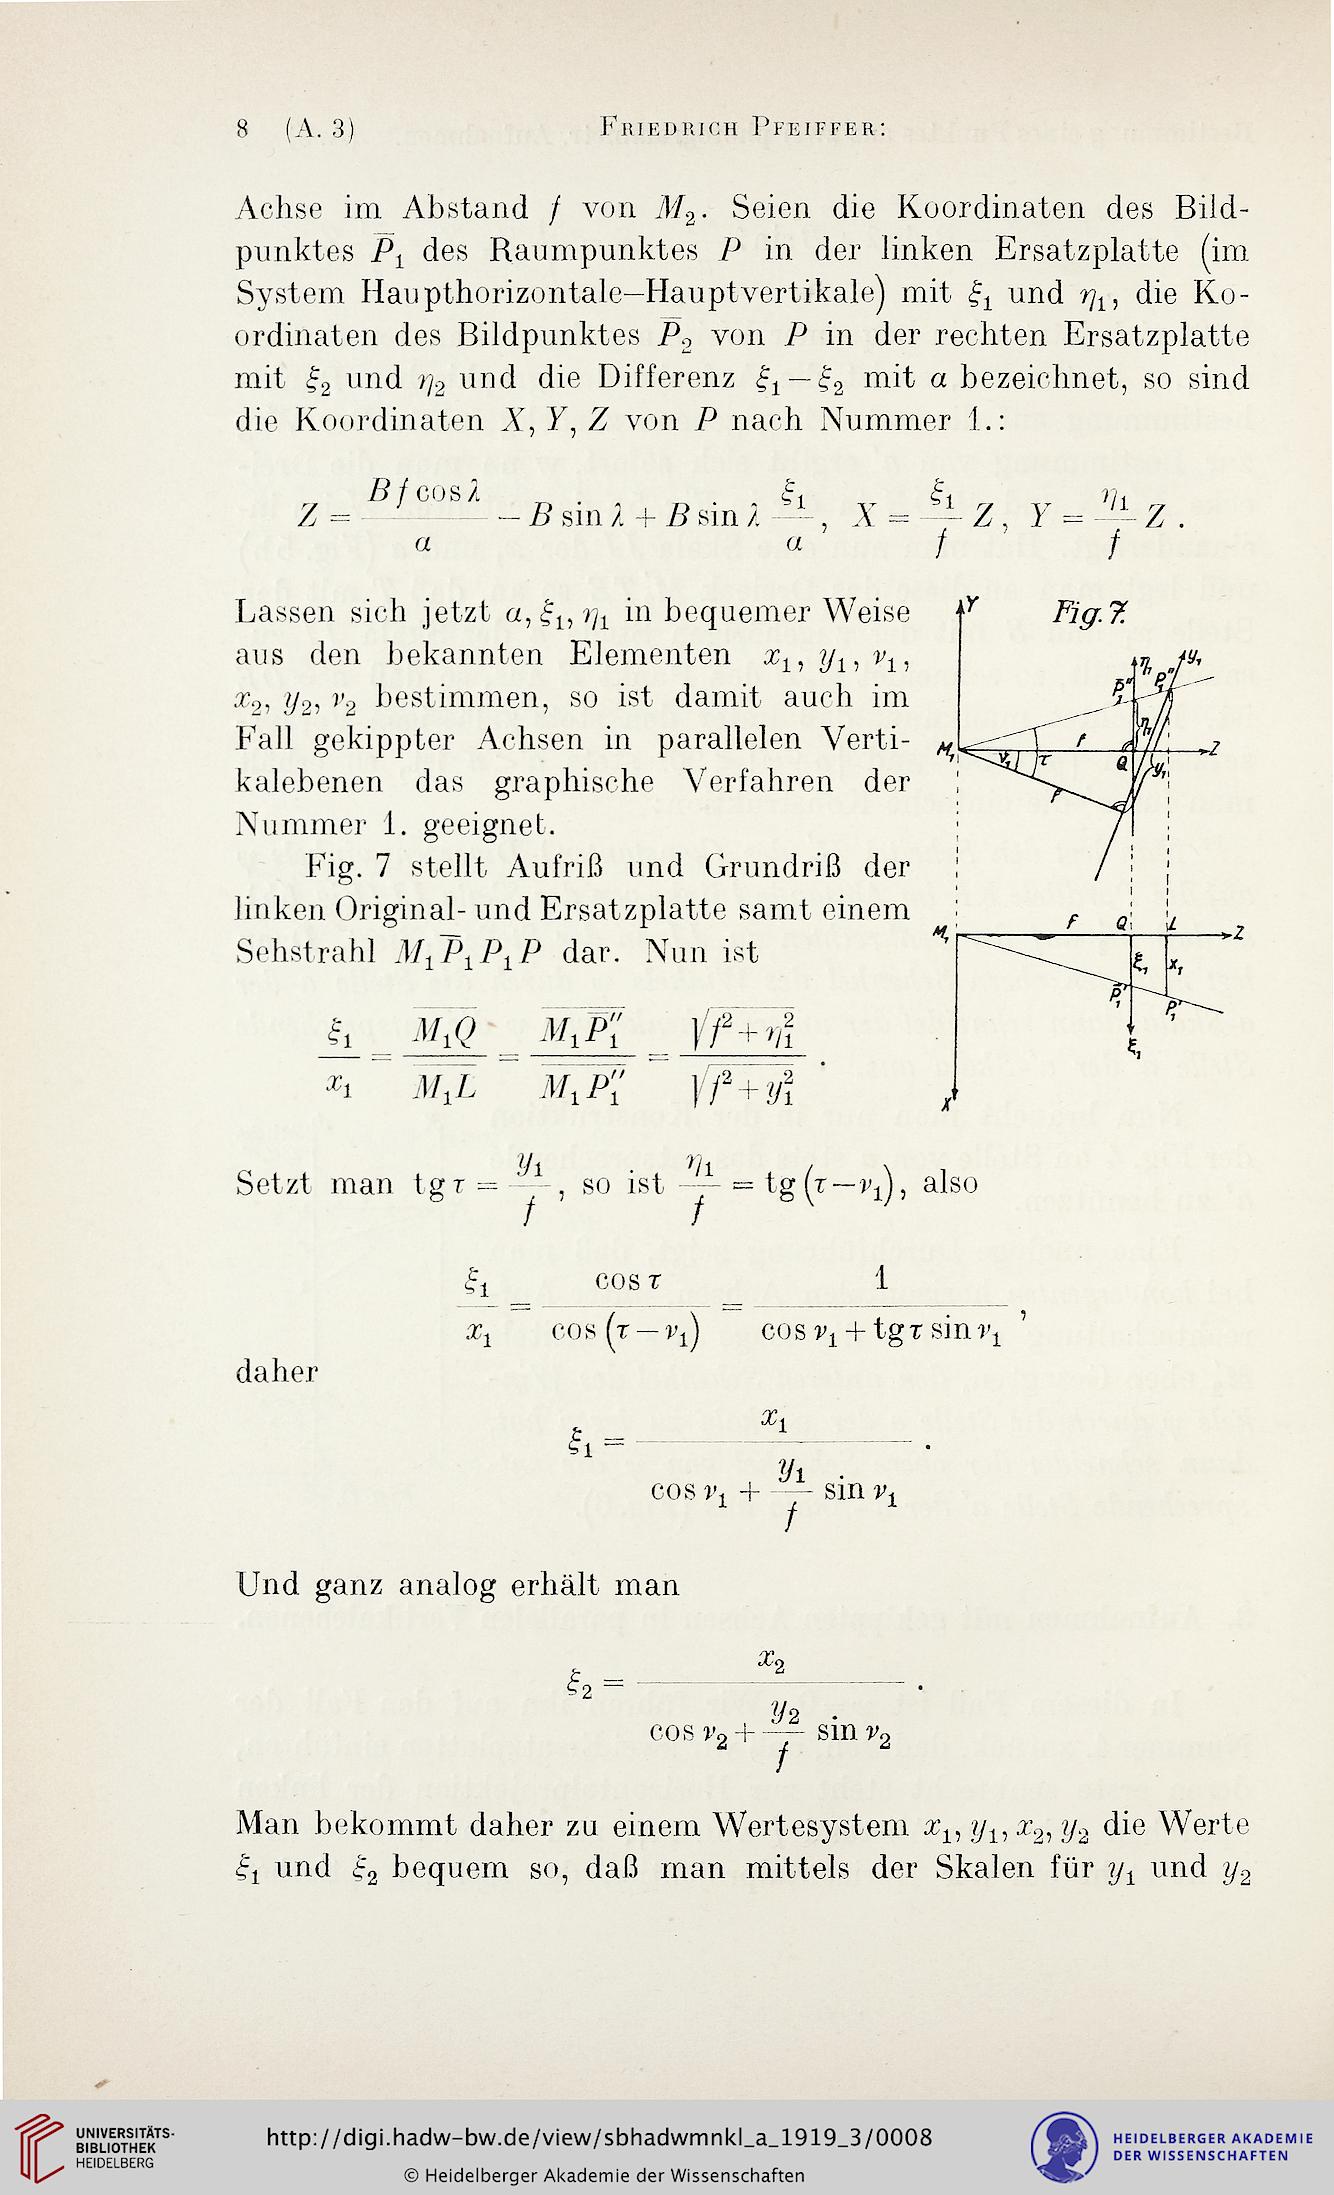 8 (A. 3) FRIEDRICH PFEIFFER:
Achse im Abstand f von M₂. Seien die Koordinaten des Bild-
punktes P̅₁ des Raumpunktes P in der linken Ersatzplatte (im
System Haupthorizontale–Hauptvertikale) mit ξ₁ und η₁, die Ko-
ordinaten des Bildpunktes P̅₂ von P in der rechten Ersatzplatte
mit ξ₂ und η₂ und die Differenz ξ₁ — ξ₂ mit a bezeichnet, so sind
die Koordinaten X, Y, Z von P nach Nummer 1.:
Z = B f cos λ / a — B sin λ + B sin λ ξ₁ / a, X = ξ₁ / f Z, Y = η₁ / f Z.
Lassen sich jetzt a, ξ₁, η₁ in bequemer Weise
aus den bekannten Elementen x₁, y₁, ν₁,
x₂, y₂, ν₂ bestimmen, so ist damit auch im
Fall gekippter Achsen in parallelen Verti-
kalebenen das graphische Verfahren der
Nummer 1. geeignet.
Fig. 7 stellt Aufriß und Grundriß der
linken Original- und Ersatzplatte samt einem
Sehstrahl M₁P̅₁P₁P dar. Nun ist
Fig. 7.
Y
η₁ y₁
P̅₁″ P₁″
η₁
M₁ ν₁ τ f Q Z
y₁
f
M₁ f Q L Z
ξ₁ x₁
P̅₁′ P₁′
ξ₁
X
ξ₁ / x₁ = M₁Q / M₁L = M₁P̅₁″ / M₁P₁″ = √(f² + η₁²) / √(f² + y₁²).
Setzt man tg τ = y₁ / f, so ist η₁ / f = tg (τ — ν₁), also
ξ₁ / x₁ = cos τ / cos (τ — ν₁) = 1 / cos ν₁ + tg τ sin ν₁,
daher
ξ₁ = x₁ / cos ν₁ + y₁ / f sin ν₁.
Und ganz analog erhält man
ξ₂ = x₂ / cos ν₂ + y₂ / f sin ν₂.
Man bekommt daher zu einem Wertesystem x₁, y₁, x₂, y₂ die Werte
ξ₁ und ξ₂ bequem so, daß man mittels der Skalen für y₁ und y₂
UNIVERSITÄTS-
BIBLIOTHEK
HEIDELBERG
http://digi.hadw-bw.de/view/sbhadwmnkl_a_1919_3/0008
© Heidelberger Akademie der Wissenschaften
HEIDELBERGER AKADEMIE
DER WISSENSCHAFTEN